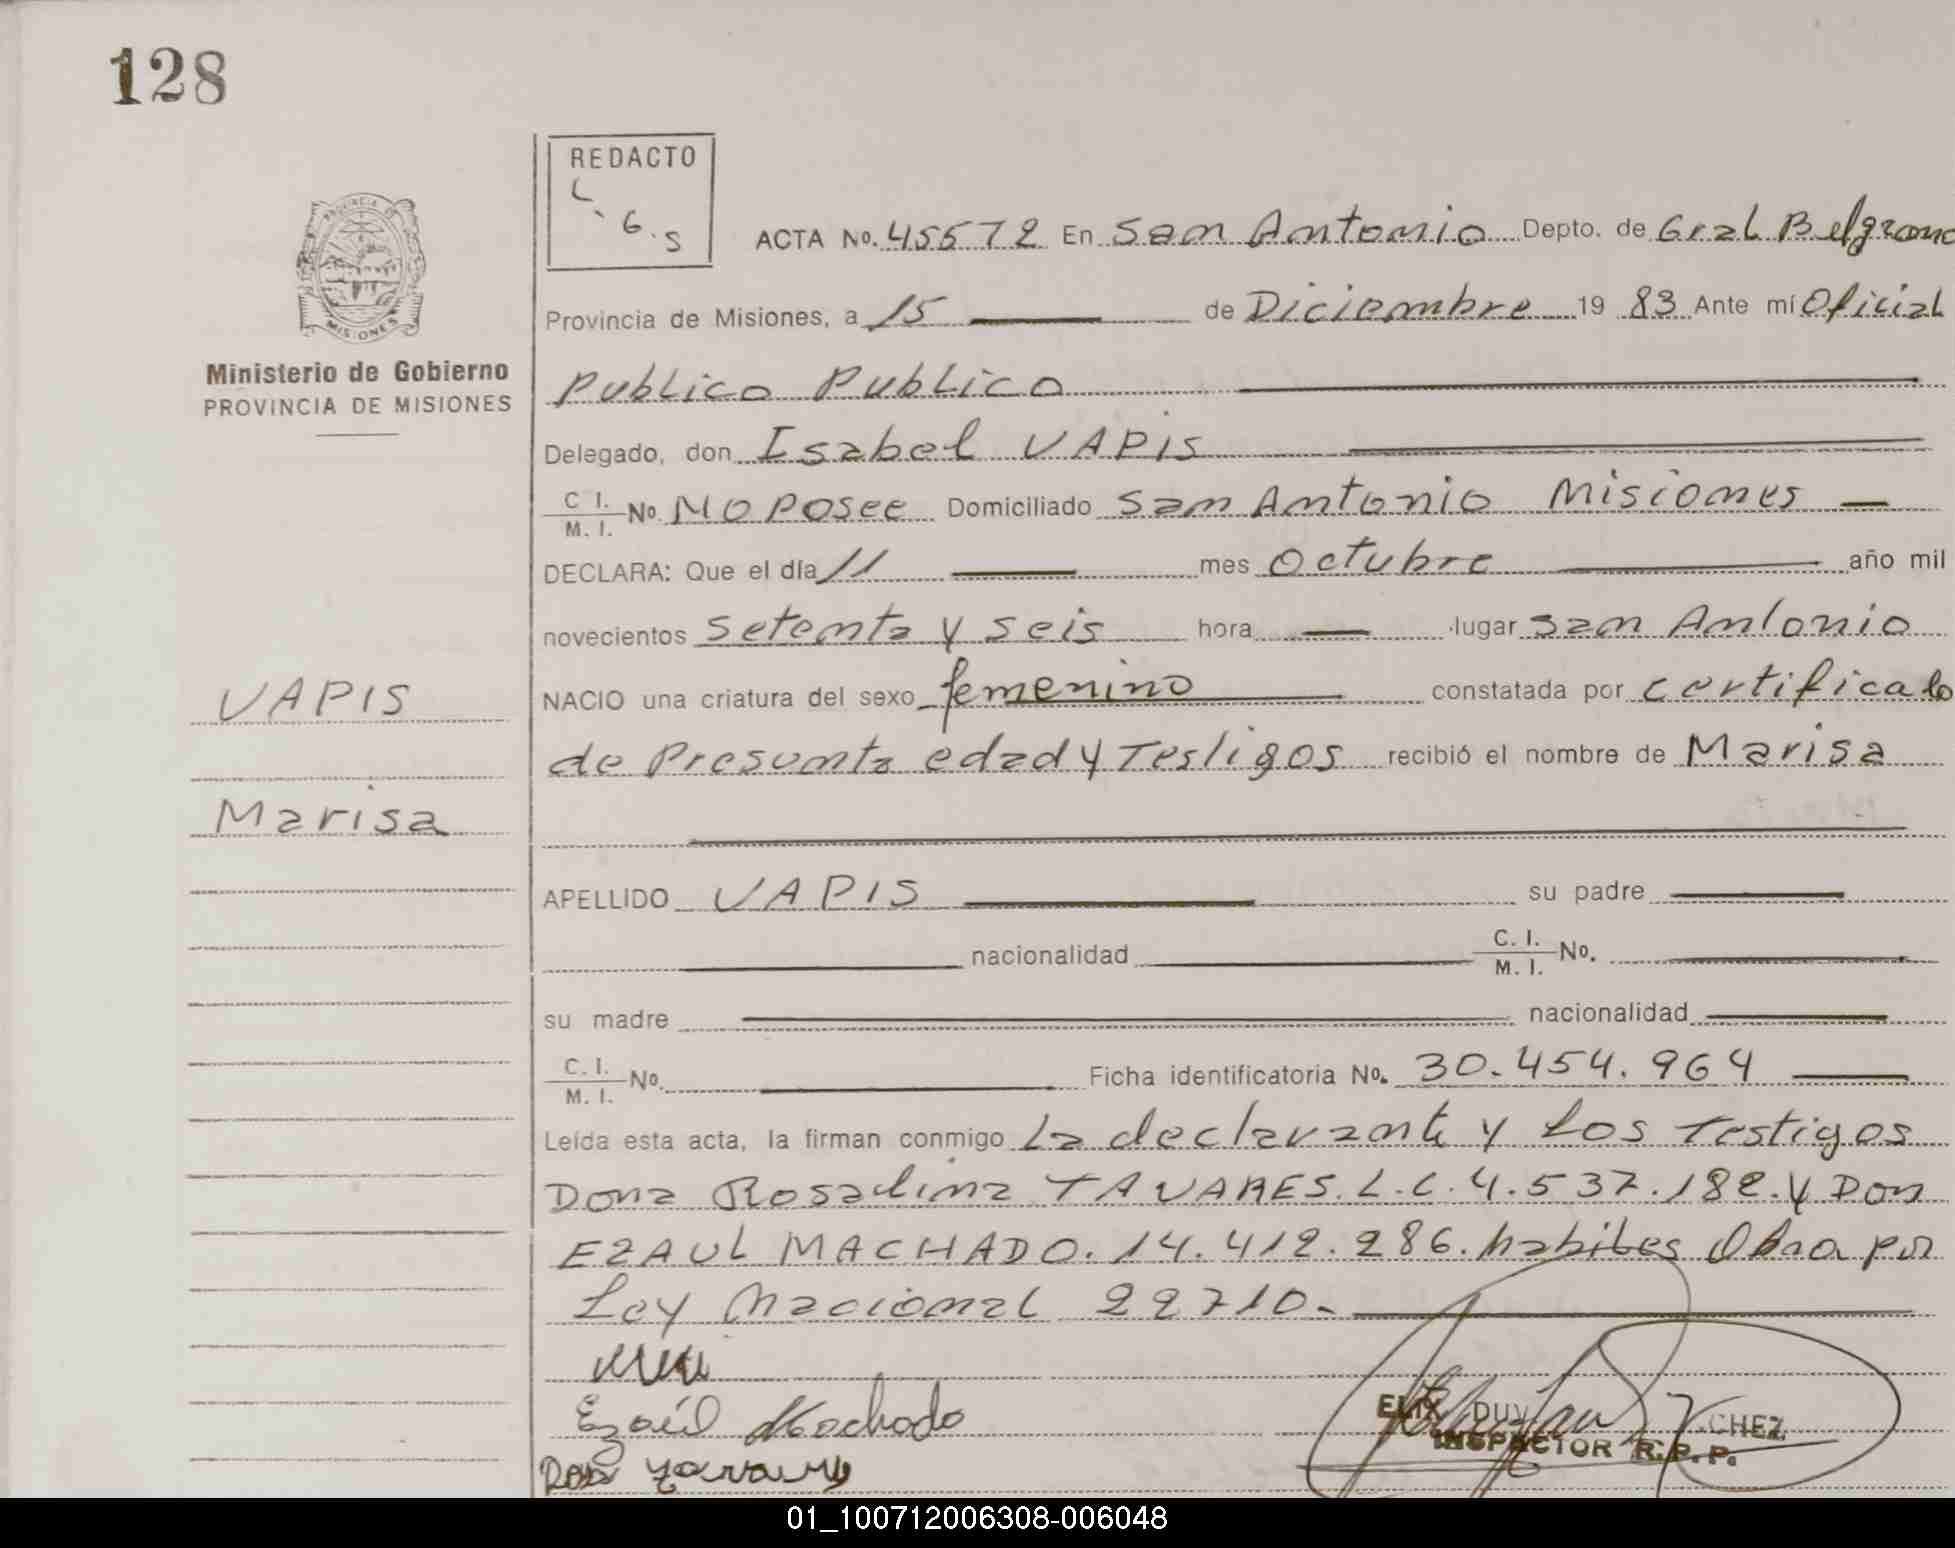 128
REDACTO
L.G.S
ACTA No. 45572 En San Antonio Depto. de Gral Belgrano
PROVINCIA DE
MISIONES
Ministerio de Gobierno
PROVINCIA DE MISIONES
Provincia de Misiones, a 15 de Diciembre 19 83 Ante mí Oficial
Publico Publico
Delegado, don Isabel VAPIS
C I. / M. I. No. No Posee Domiciliado San Antonio Misiones
DECLARA: Que el día 11 mes Octubre año mil
novecientos setenta y seis hora lugar San Antonio
VAPIS
NACIO una criatura del sexo femenino constatada por certificado
de Presunta edad y Testigos recibió el nombre de Marisa
Marisa
APELLIDO VAPIS su padre
nacionalidad C. I. / M. I. No.
su madre nacionalidad
C. I. / M. I. No. Ficha identificatoria No. 30.454.964
Leída esta acta, la firman conmigo La declarante y Los Testigos
Dona Rosalina TAVARES. L.C. 4.537.182. y Don
EZAUL MACHADO. 14.412.286. habiles Obra por
Ley Nacional 22710.-
Ezaúl Machado
ELIX DUV CHEZ
INSPECTOR R.P.P.
01_100712006308-006048